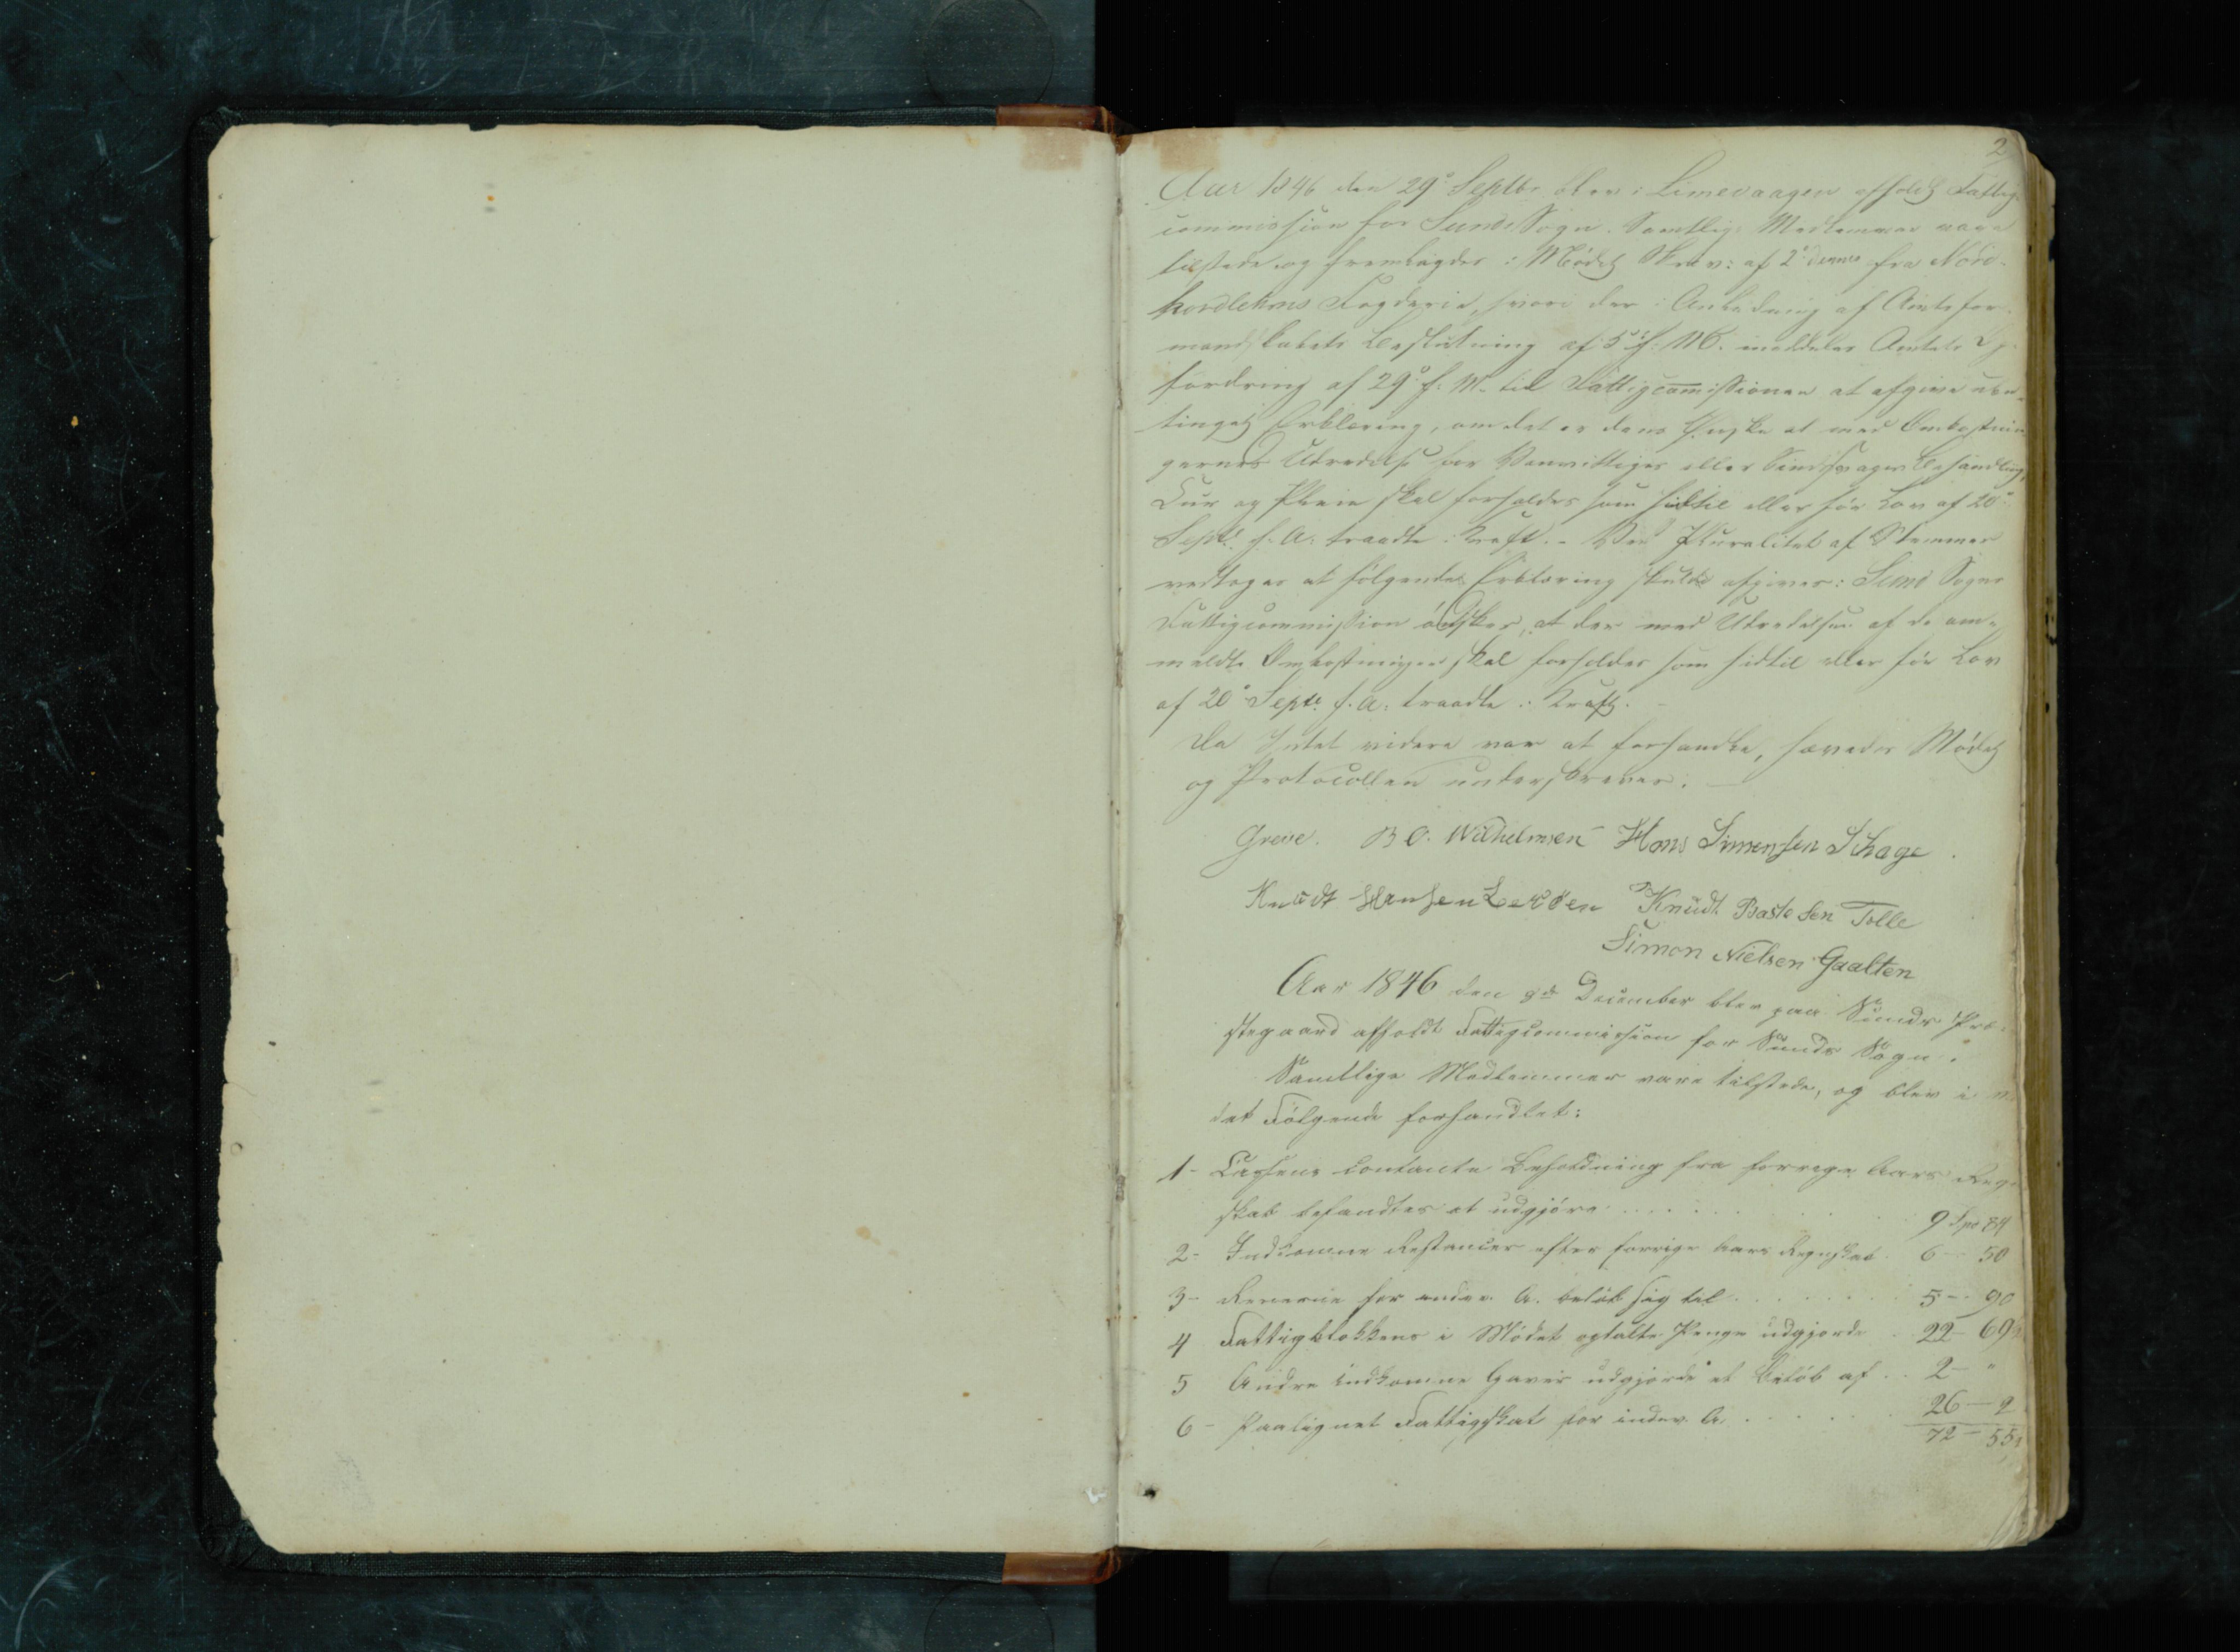 2
Aar 1846 den 29de Septbr blev i Limevaagen afholdt Fattig-
commission for Sunds Sogn. Samtlige Medlemmer vare
tilstede og fremlagdes i Mødet Skriv: af 2den dennes fra Nord-
hordlehns Fogderie, hvori der i Anledning af Amtsfor-
mandskabets Beslutning af 5te f: M. meddeles Amtets Op-
fordring af 29de f. M. til Fattigcomissionen at afgive ube-
tinget Erklæring, om det er dens Ønske at med Omkostnin
gernes Udredelse for Vanvittiges eller Sindssvages Behandling,
Cur og Pleie skal forholdes som hidtil eller før Lov af 20de
Septb. f. A. traadte i Kraft. - Ved Pluralitet af Stemmer
vedtoges at følgende Erklæring skulde afgives: Sunds Sogns
Fattigcommission ønsker, at der med Udredelsen af de om-
meldte Omkostninger skal forholdes som hidtil eller før Lov
af 20de Septb. f. A. traadte i Kraft. -
Da Intet videre var at forhandle, hævedes Mødet
og Protocollen underskreves. -
Greve. B O. Wilhelmsen Hans Simensen Schage
Knudt Hansen Lerøen Knudt Baste Sen Tolle
Simon Nielsen Gaalten
Aar 1846 den 8de December blev paa Sunds Præ-
stegaard afholdt Fattigcommission for Sunds Sogn.
Samtlige Medlemmer vare tilstede, og blev i
det Følgende forhandlet:
1- Cassens contante Beholdning fra forrige Aars Regn
skab befandtes at udgjøre . . . . . 9 Spd 84
2- Indkomne Restancer efter forrige Aars Regnskab 6 - 50
3- Renterne for indev. A. beløb sig til . . . . . 5 - 90
4 Fattigblokkens i Mødet optalte Penge udgjorde . 22 - 69
5 Andre indkomne Gaver udgjorde et Beløb af . . 2 - "
6- Paalignet Fattigskat for indev. A. . . . . . 26 - 2
72 - 55